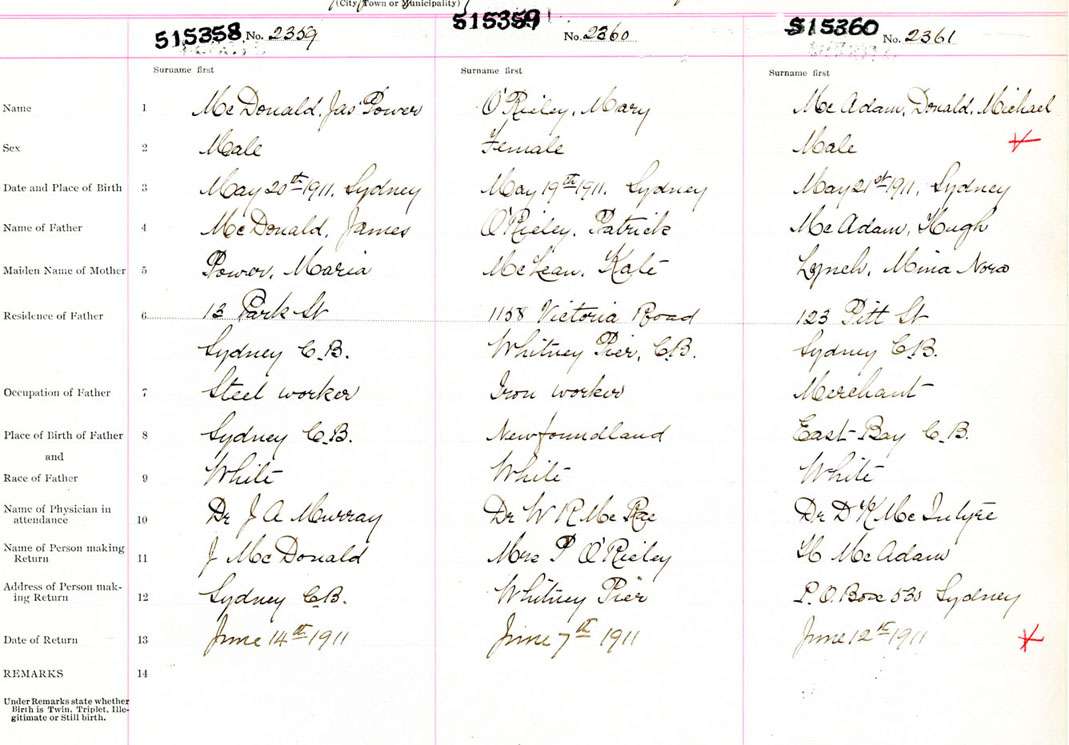 (City, Town or Municipality)
515358 No. 2359
515359 No. 2360
515360 No. 2361
Surname first Surname first Surname first
Name 1 McDonald, Jas Power O'Rieley, Mary McAdam, Donald, Michael
Sex 2 Male Female Male
Date and Place of Birth 3 May 20th 1911, Sydney May 19th 1911. Sydney May 21st 1911, Sydney
Name of Father 4 McDonald, James O'Rieley, Patrick McAdam, Hugh
Maiden Name of Mother 5 Power, Maria McLean, Kate Lynch, Mina Nora
Residence of Father 6 13 Park St 1158 Victoria Road 123 Pitt St
Sydney C.B. Whitney Pier, C.B. Sydney C.B.
Occupation of Father 7 Steel worker Iron worker Merchant
Place of Birth of Father 8 Sydney C.B. Newfoundland East Bay C.B.
and
Race of Father 9 White White White
Name of Physician in
attendance 10 Dr J A Murray Dr W R McRae Dr D K McIntyre
Name of Person making
Return 11 J McDonald Mrs P O'Rieley H McAdam
Address of Person mak-
ing Return 12 Sydney C.B. Whitney Pier P.O. Box Sydney
Date of Return 13 June 14th 1911 June 7th 1911 June 12th 1911
REMARKS 14
Under Remarks state whether
Birth is Twin, Triplet, Ille-
gitimate or Still birth.